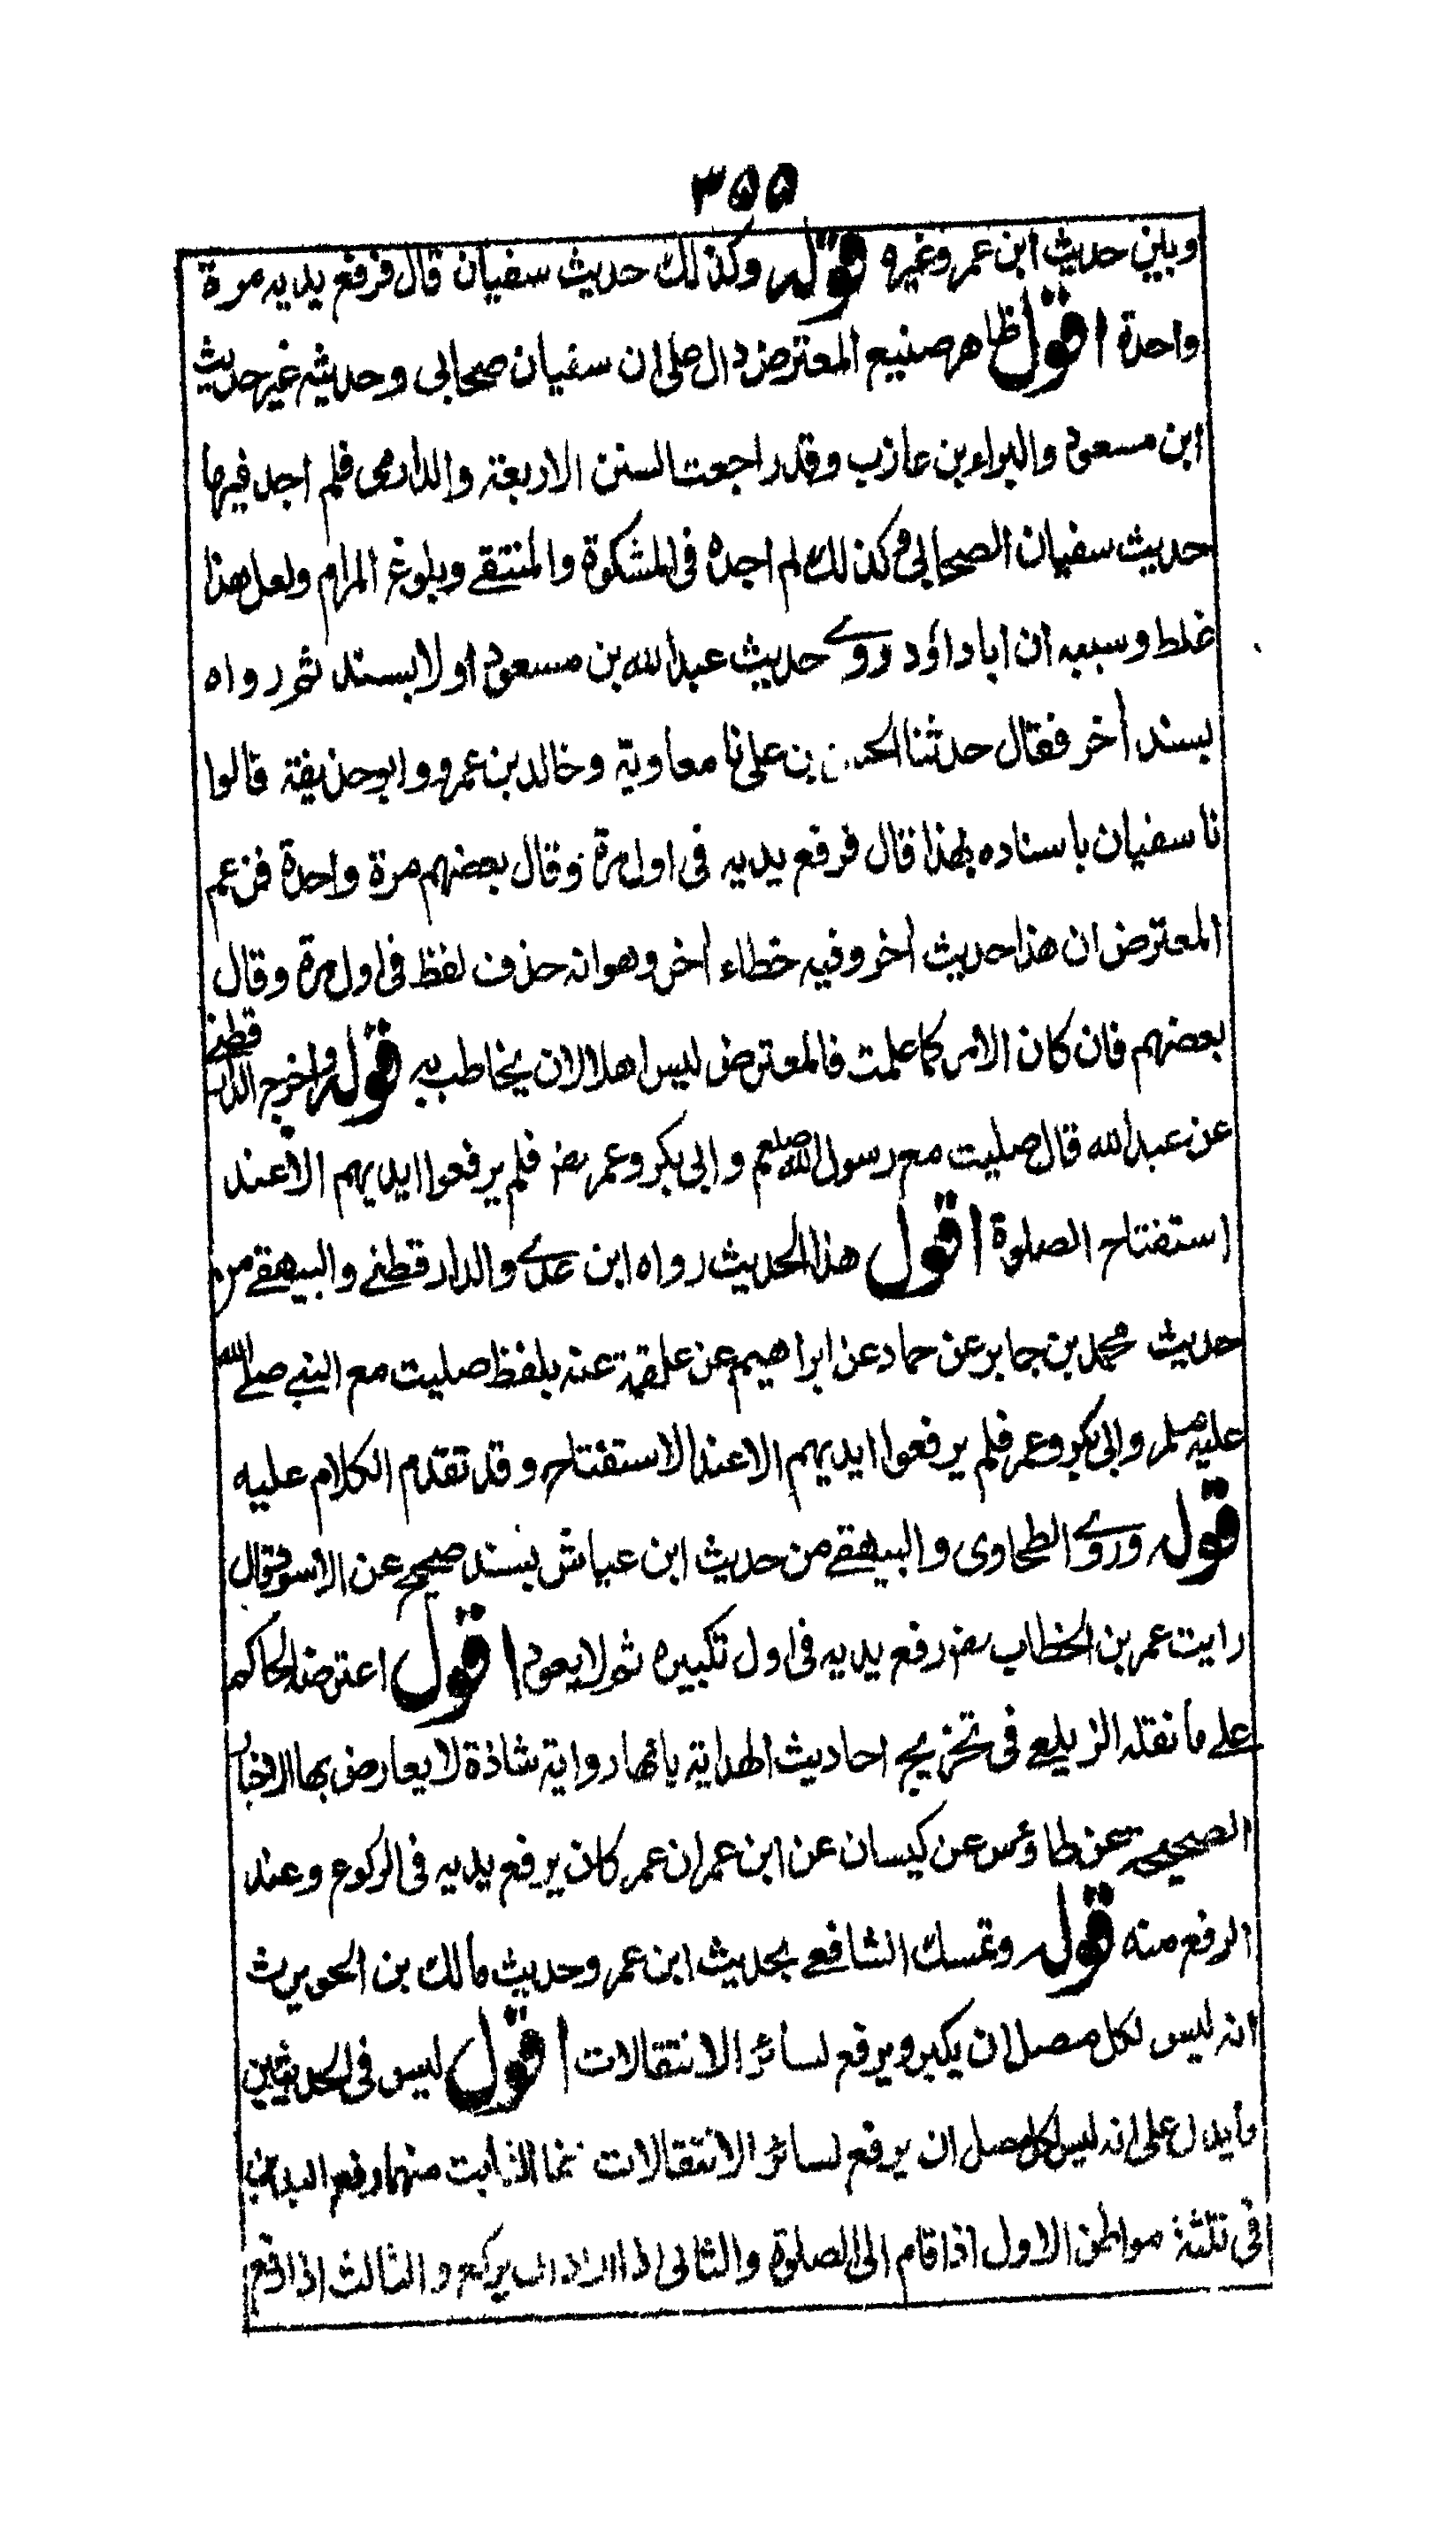 ٣٥٥
وبين حديث ابن عمر وغيره قوله وكذلك حديث سفيان قال فرفع يديه مرة
واحدة اقول ظاهر صنيع المعترض دال على ان سفيان صحابى وحديثه غير حديث
ابن مسعود والبراء بن عازب وقد راجعت السنن الاربعة والدارمى فلم اجد فيها
حديث سفيان الصحابى وكذلك لم اجده فى المشكوة والمنتقے وبلوغ المرام ولعل هذا
غلط وسببه ان ابا داؤد روے حديث عبد الله بن مسعود اولا بسند ثم رواه
بسند أخر فقال حدثنا بن على نا معاوية وخالد بن عمرو وابو حذيفة قالوا
نا سفيان باسناده بهذا قال فرفع يديه فى اول مرة وقال بعضهم مرة واحدة فزعم
المعترض ان هذا حديث أخر وفيه خطاء أخر وهو انه حذف لفظ فى اول مرة وقال
بعضهم فان كان الامر كما علمت فالمعترض ليس اهلا لان يخاطب به قوله واخرج الدار قطنے
عن عبد الله قال صليت مع رسول الله صلعم وابى بكر وعمر رض فلم يرفعوا ايديهم الا عند
استفتاح الصلوة اقول هذا الحديث رواه ابن عدے والدارقطنے والبيهقے من
حديث محمد بن جابر عن حماد عن ابراهيم عن علقمة عنه بلفظ صليت مع النبے صلے الله
عليه وسلم وابى بكر وعمر فلم يرفعوا ايديهم الا عند الاستفتاح وقد تقدم الكلام عليه
قوله وروے الطحاوى والبيهقے من حديث ابن عياش بسند صحيح عن الاسود قال
رايت عمر بن الخطاب رض رفع يديه فى اول تكبيره ثم لا يعود اقول اعترضه الحاكم
علے ما نقله الزيلعے فى تخريج احاديث الهداية بانها رواية شاذة لا يعارض بها الاخبار
الصحيحة عن طاؤس عن كيسان عن ابن عمر ان عمر كان يرفع يديه فى الركوع وعند
الرفع منه قوله وتمسك الشافعے بحديث ابن عمر وحديث مالك بن الحويرث
انه ليس لكل مصل ان يكبر ويرفع لسائر الانتقالات اقول ليس فى الحديثين
ما يدل على انه ليس لكل مصل ان يرفع لسائر الانتقالات الثابت منهما رفع اليدين
فى ثلثة مواطن الاول اذا قام الى الصلوة والثانى اذا اراد ان يركع والثالث اذا رفع